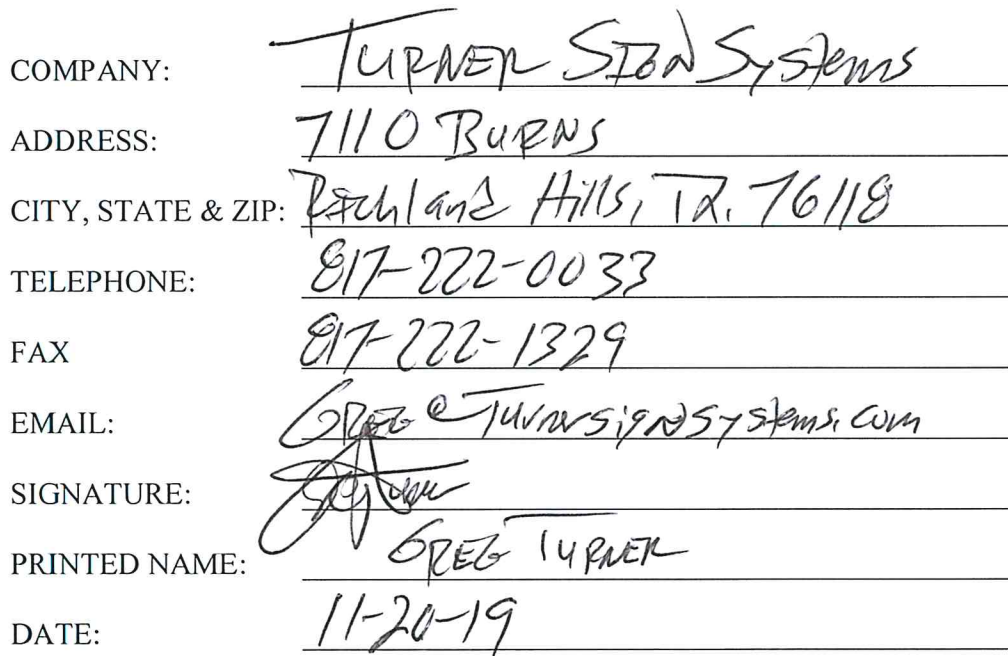 COMPANY: TURNER SIGN SYSTEMS
ADDRESS: 7110 BURNS
CITY, STATE & ZIP: Richland Hills, TX. 76118
TELEPHONE: 817-222-0033
FAX 817-222-1329
EMAIL: GREG@Turnersignsystems.com
SIGNATURE:
PRINTED NAME: GREG TURNER
DATE: 11-20-19